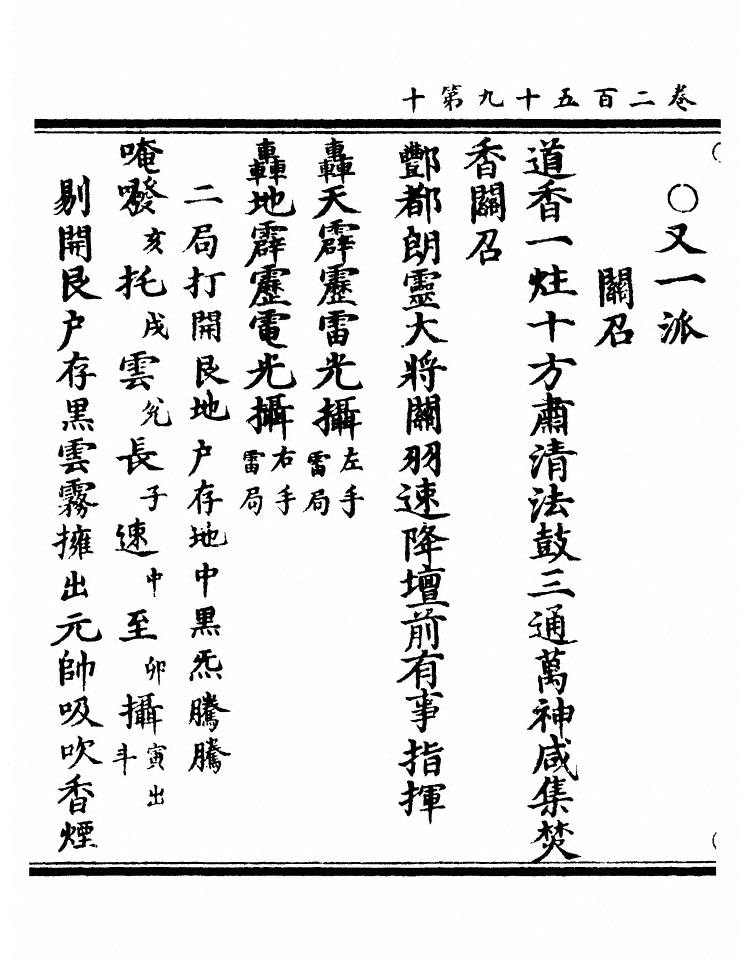 卷二百五十九第十
○又一派
關召
道香一炷十方肅清法鼓三通萬神咸集焚
香關召
酆都朗靈大將關羽速降壇前有事指揮
轟天霹靂雷光攝左手雷局
轟地霹靂電光攝右手雷局
二局打開艮地户存地中黑炁騰騰
唵㗶亥托戌雲兊長子速中至卯攝寅出斗
剔開艮户存黑雲霧擁出元帥吸吹香煙